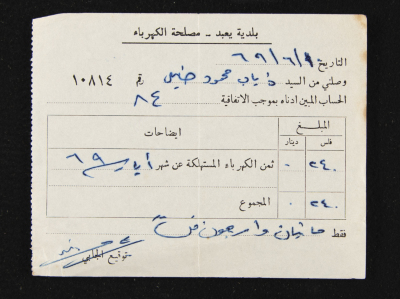 بلدية يعبد - مصلحة الكهرباء
التاريخ ٦٩/٦/١
وصلني من السيد ذياب محمود خليل رقم ١٠٨١٤
الحساب المبين ادناه بموجب الاتفاقية ٨٤
المبلغ ايضاحات
فلس دينار
٢٤٠ ٠ ثمن الكهرباء المستهلكة عن شهر أيار ٦٩
٢٤٠ ٠ المجموع
فقط مائتان واربعون فلساً
توقيع الجابي